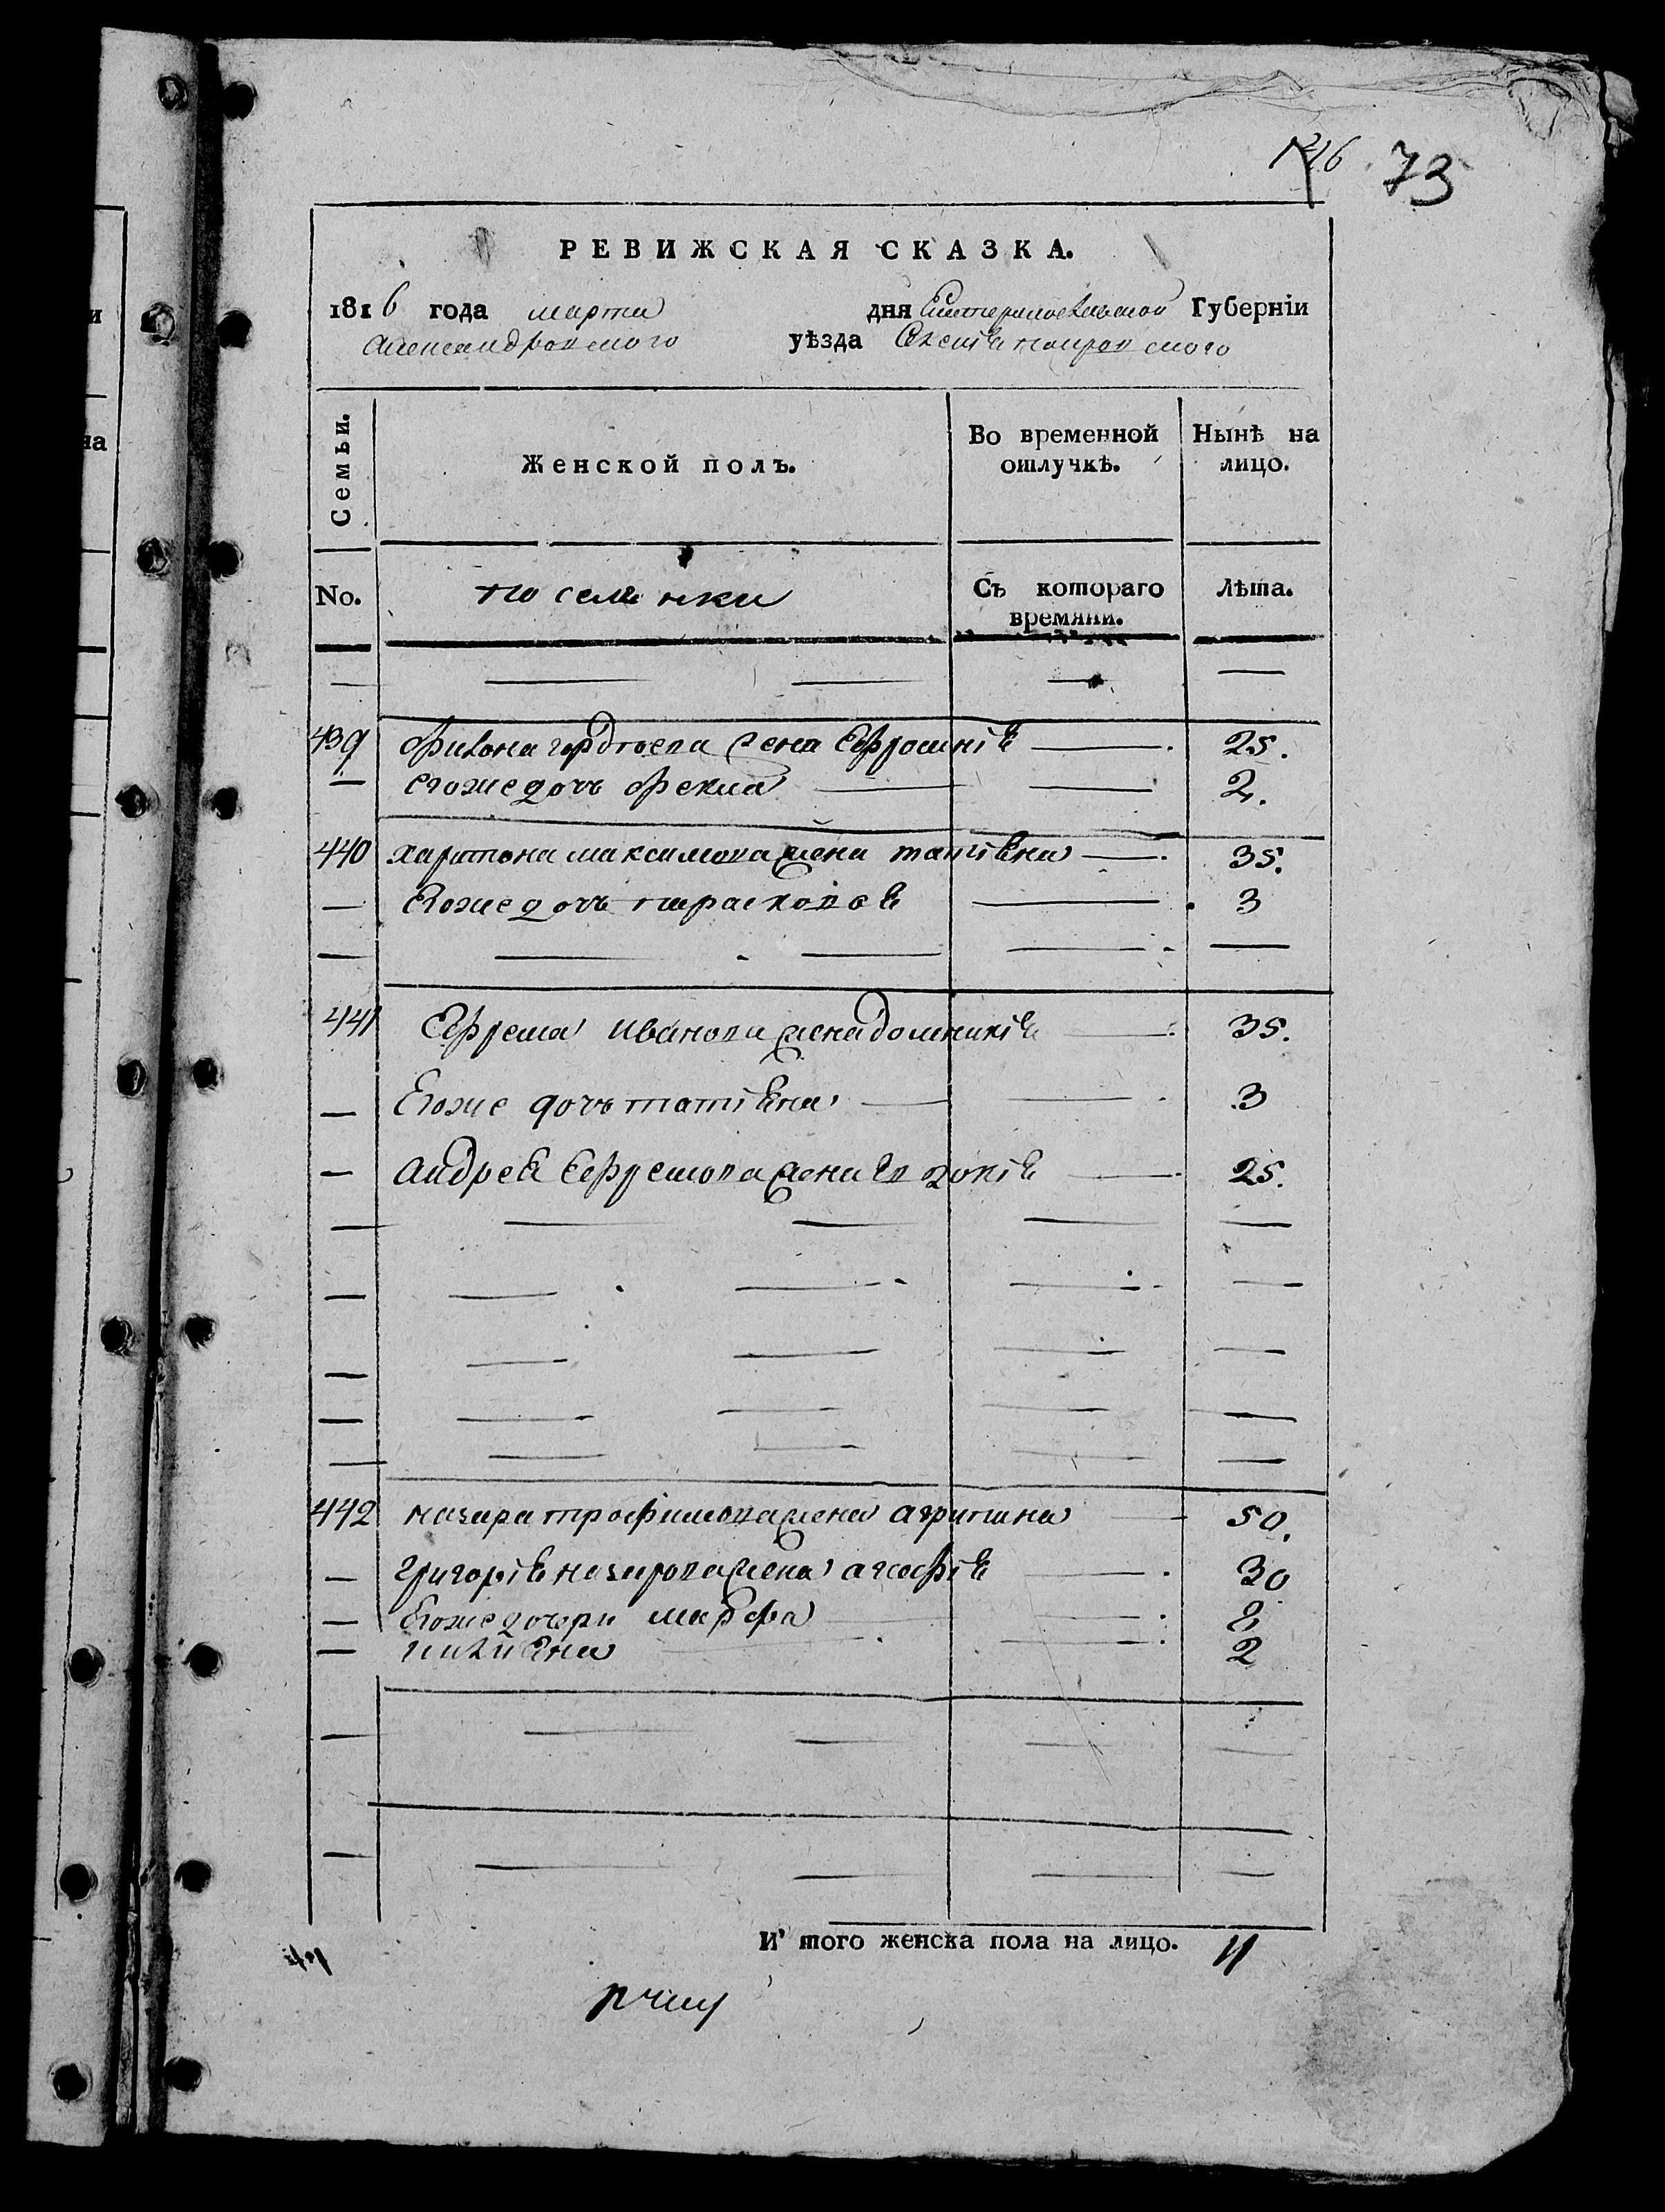 73
РЕВИЖСКАЯ СКАЗКА.
1816 года марта дня Екатеринославской Губерніи
Александровского уѣзда
Семьи.
Женской полъ.
Во временной отлучкѣ.
Нынѣ на лицо.
No.
поселянки
Съ котораго времяни.
Лѣта.
439 Филона гордѣева жена Ефросинія 25.
егоже дочь Фекла 2.
440 харитона максимова жена татіяна 35.
Егоже дочь парасковія 3
441 Ефрема Иванова жена домникія 35.
Егоже дочь татіяна 3
Андрея Ефремова жена Евдокія 25.
442 назара трофимова жена агрипина 50.
григорія назарова жена агафія 30
Егоже дочери марфа 8
2
И того женска пола на лицо. 11